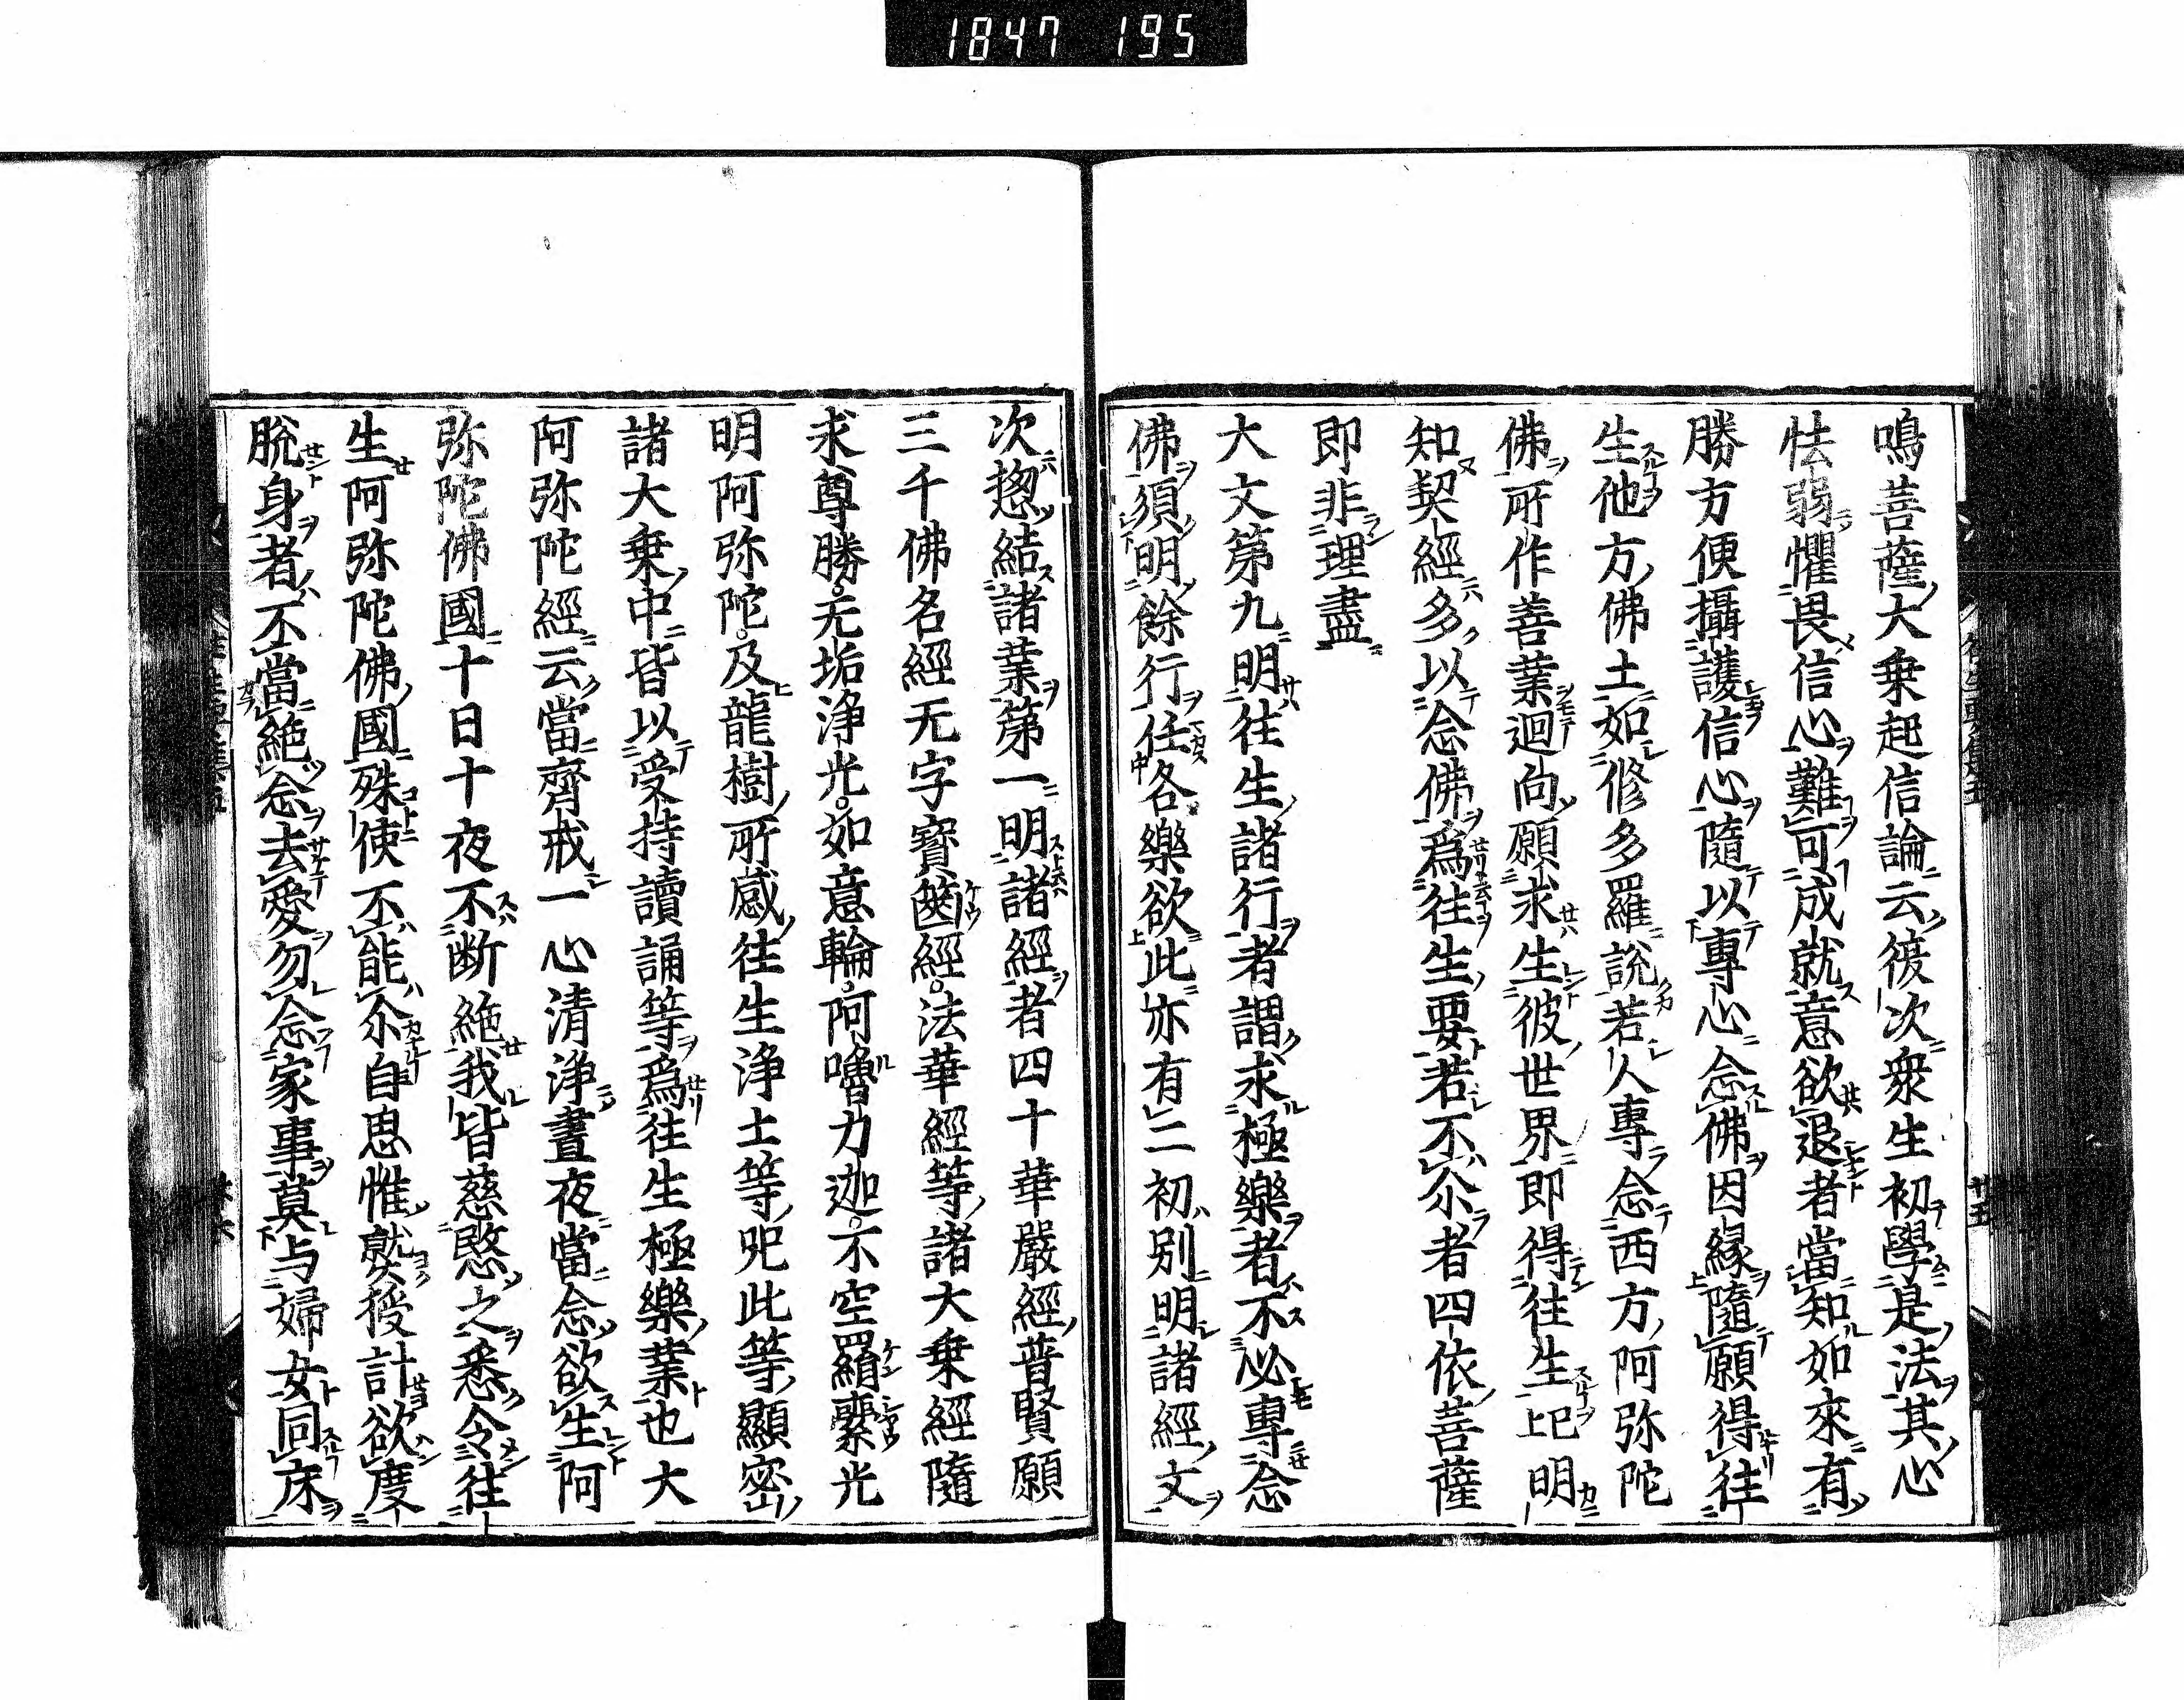 1847 195
鳴菩薩大乗起信論云復次衆生初學是法其心
怯弱懼畏信心難可成就意欲退者當知如來有
勝方便攝護信心隨以專心念佛因縁隨願得往
生他方佛土如修多羅說若人專念西方阿弥陀
佛所作善業迴向願求生彼世界即得往生上巳明
知契經多以念佛爲往生要若不尒者四依菩薩
即非理盡
大文第九明往生諸行者謂求極樂者不必專念
佛須明餘行任各樂欲此亦有二初別明諸經文
次惣結諸業第一明諸經者四十華嚴經普賢願
三千佛名經无字寳篋經法華經等諸大乗經隨
求尊勝无垢浄光如意輪阿嚕力迦不空羂索光
明阿弥陀及龍樹所感往生浄土等呪此等顯密
諸大乗中皆以受持讀誦等爲往生極樂業也大
阿弥陀經云當齋戒一心清浄晝夜當念欲生阿
弥陀佛國十日十夜不断絶我皆慈愍之悉令往
生阿弥陀佛國殊使不能尒自思惟熟挍計欲度
脱身者不當絶念去愛勿念家事莫与婦女同床